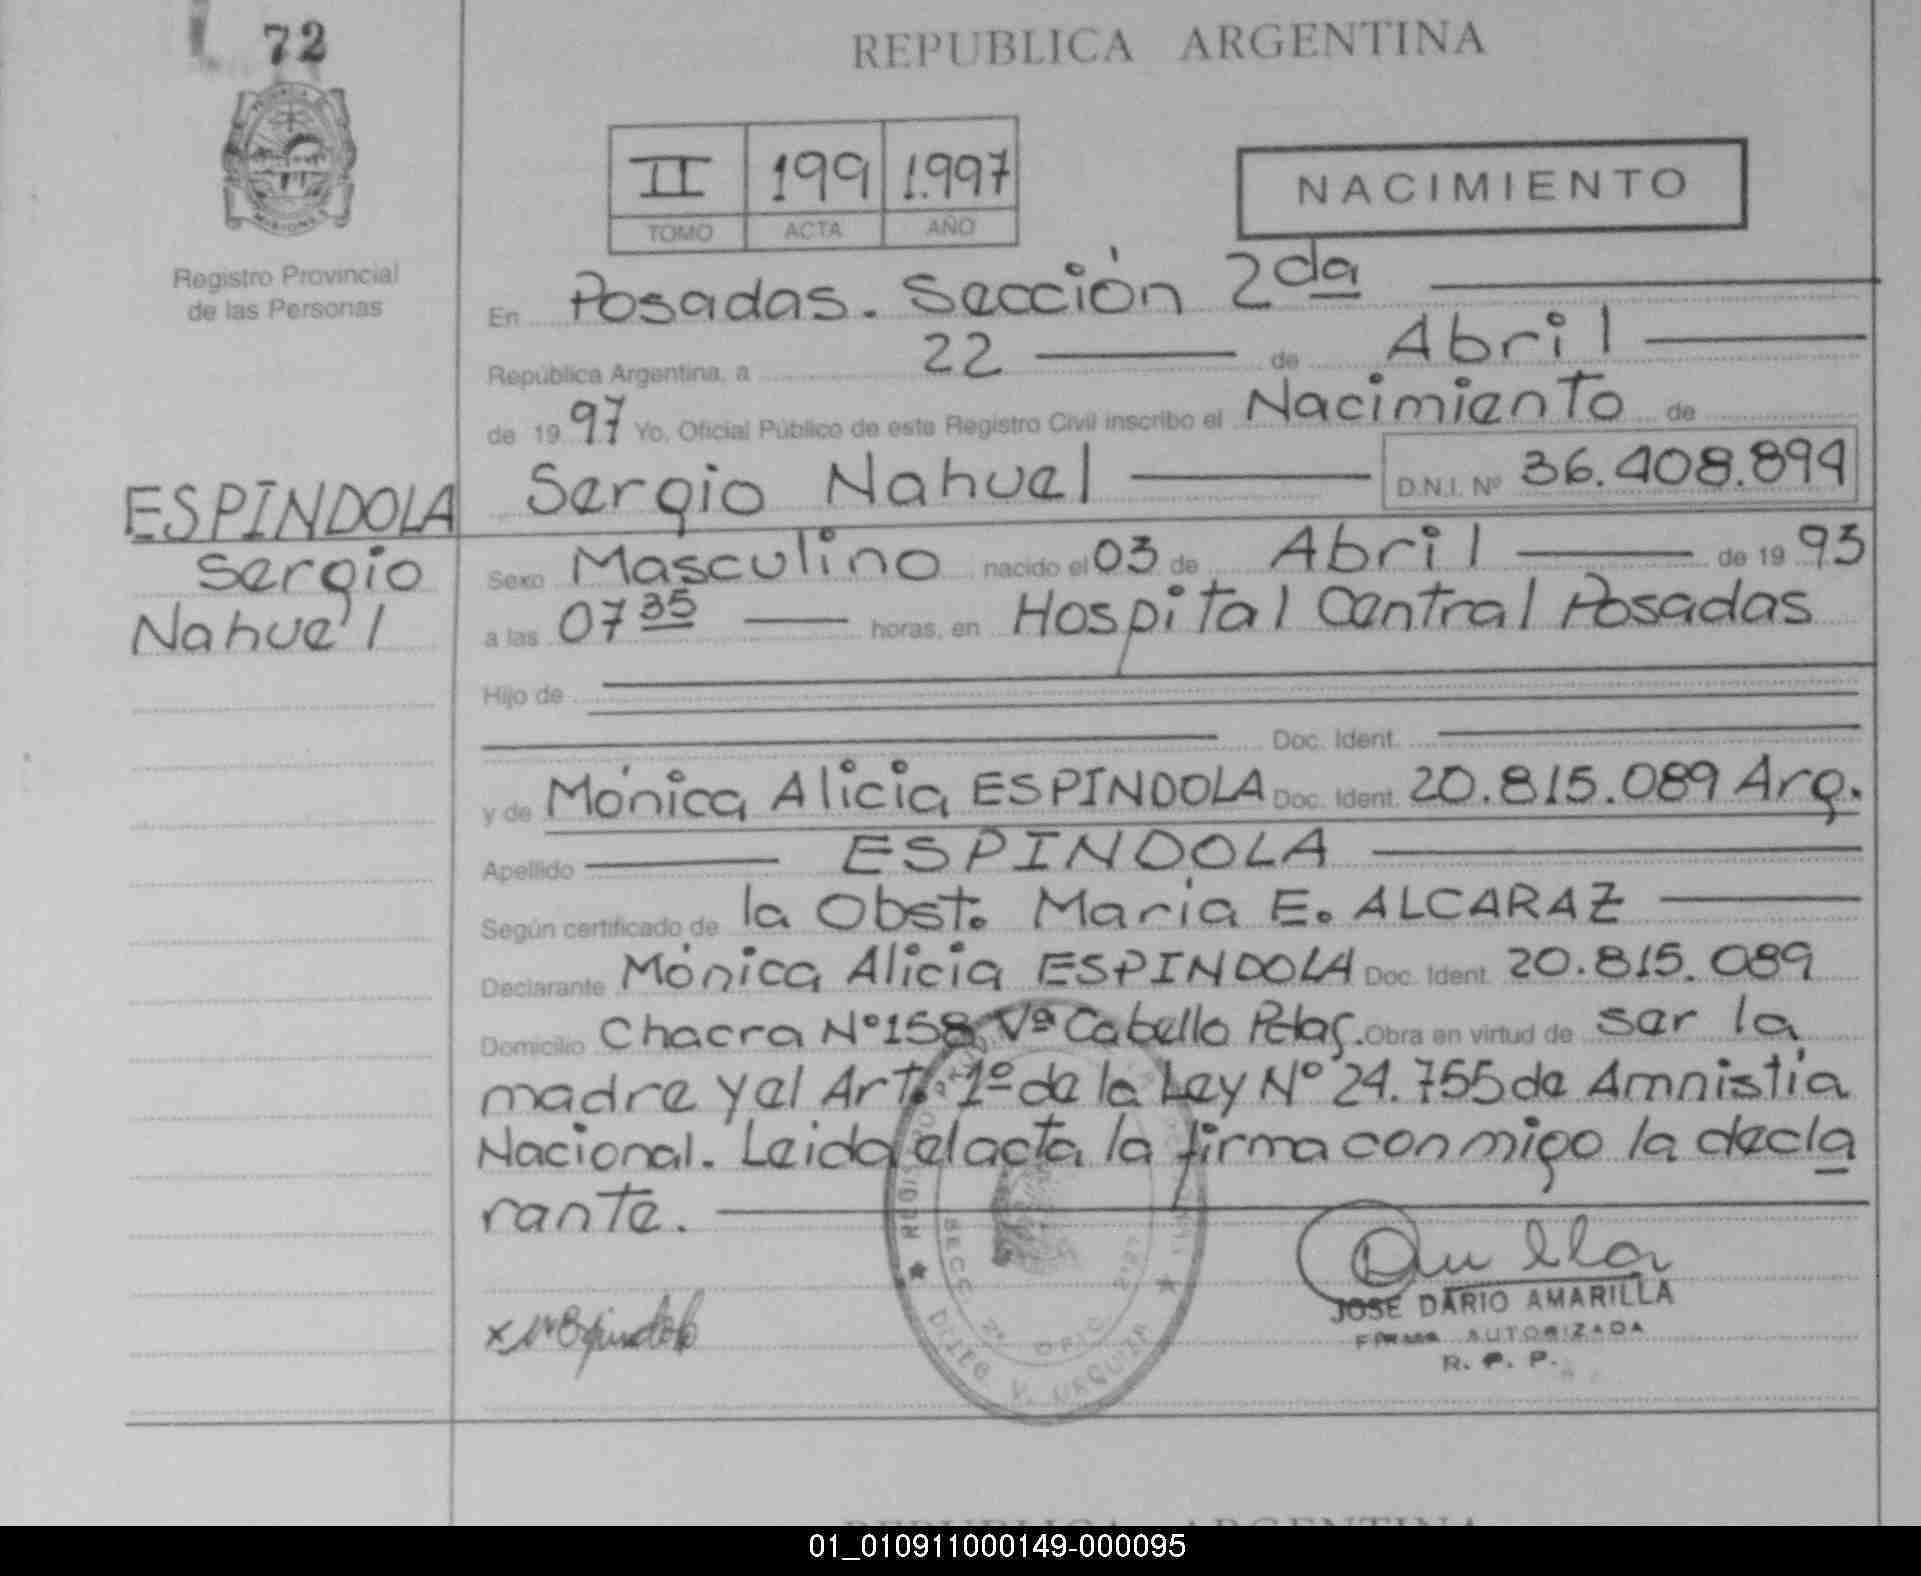 72
REPUBLICA ARGENTINA
II 199 1.997
TOMO ACTA AÑO
NACIMIENTO
Registro Provincial
de las Personas
En Posadas. Sección 2da
República Argentina, a 22 de Abril
de 1997 Yo, Oficial Público de este Registro Civil inscribo el Nacimiento de
Sergio Nahuel D.N.I. Nº 36.408.894
ESPINDOLA
Sergio
Nahuel
Sexo Masculino nacido el 03 de Abril de 1993
a las 07 35 horas, en Hospital Central Posadas
Hijo de
Doc. Ident.
y de Mónica Alicia ESPINDOLA Doc. Ident. 20.815.089 Arg.
Apellido ESPINDOLA
Según certificado de la Obst. Maria E. ALCARAZ
Declarante Mónica Alicia ESPINDOLA Doc. Ident. 20.815.089
Domicilio Chacra Nº 158 Vª Cabello Pdas. Obra en virtud de ser la
madre y el Art. 1º de la Ley Nº 24.755 de Amnistía
Nacional. Leida el acta la firma conmigo la decla
rante.
JOSE DARIO AMARILLA
FIRMA AUTORIZADA
R. P. P.
SECC. 2ª OFIC.
URQUIZA
REPUBLICA ARGENTINA
01_010911000149-000095